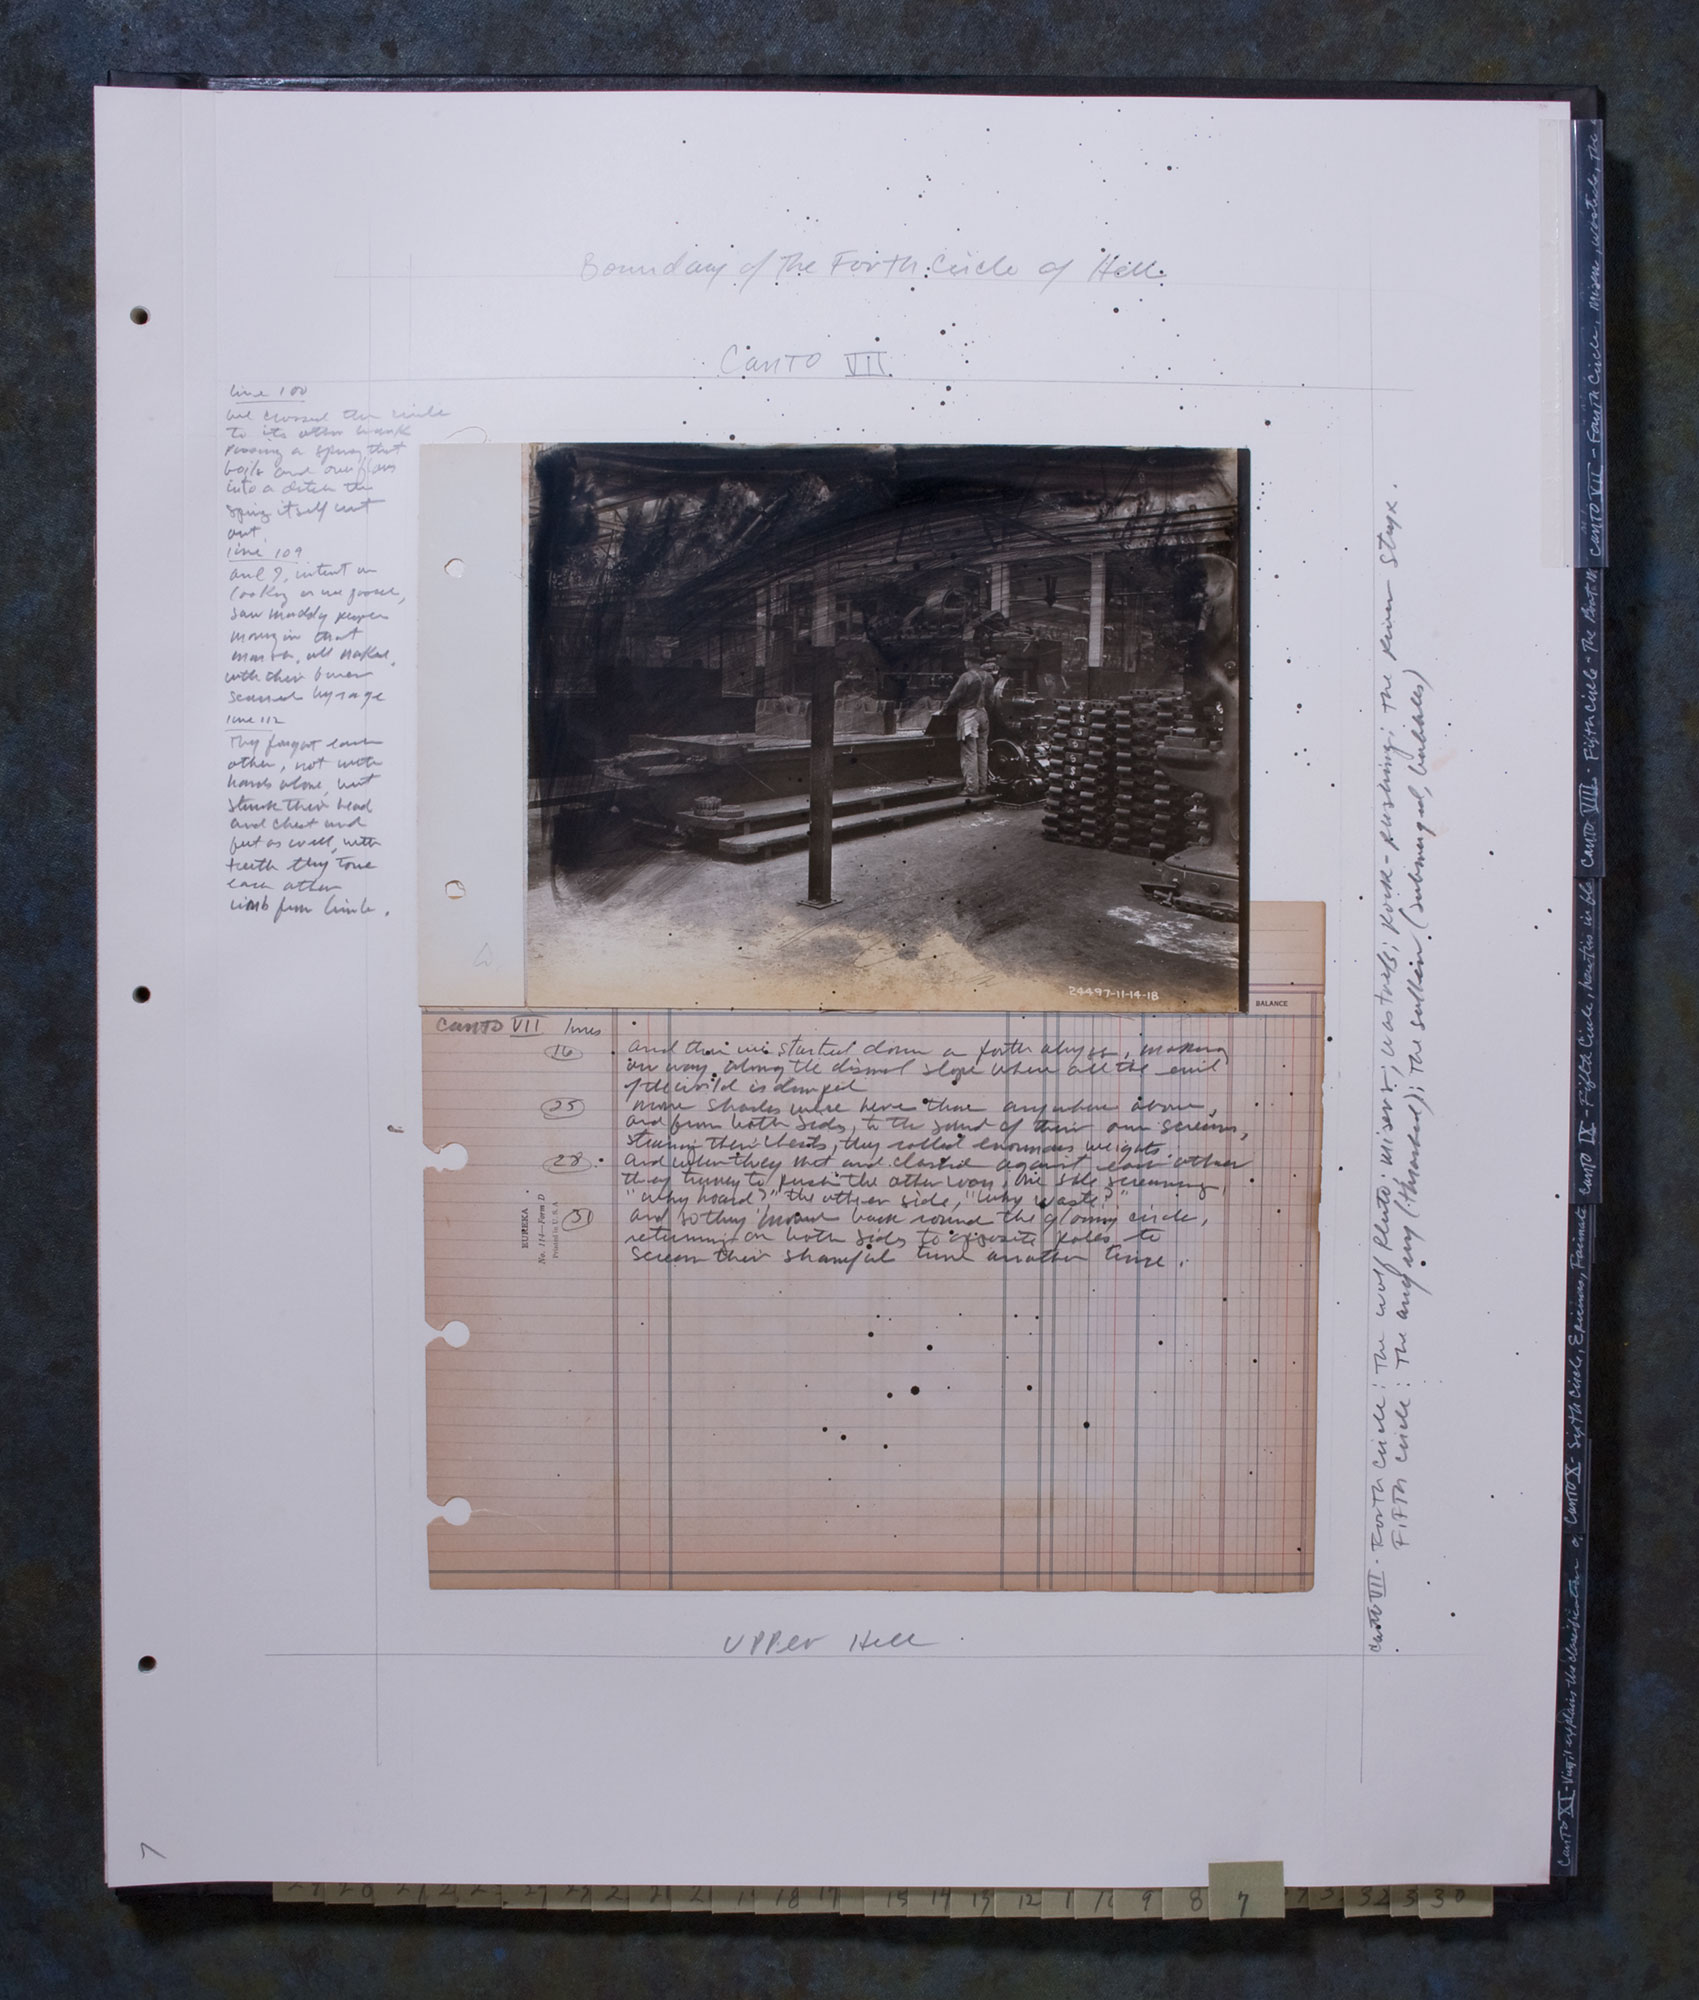 Boundary of The Forth Circle of Hell
Canto VII
line 100
we crossed the circle
to its other bank
passing a spring that
boils and overflows
into a ditch the
spring itself cut
out
line 109
and I, intent on
looking as we passed,
saw muddy people
moving in that
marsh, all naked,
with their faces
scarred by rage
line 112
They fought each
other, not with
hands alone, but
struck their head
and chest and
feet as well, with
teeth they tore
each other
limb from limb.
24497-11-14-18
BALANCE
Canto VII lines
16 and then we started down a forth abyss, making
our way along the dismal slope where all the evil
of the world is dumped
25 more shades were here than anywhere above,
and from both sides, to the sound of their own screams,
straining their chests, they rolled enormous weights
28 and when they met and clashed against each other
they turned to push the other way, one side screaming,
"why hoard?" the other side, "why waste?"
31 and so they moved back round the gloomy circle,
returning on both sides to opposite poles to
scream their shameful tune another time.
EUREKA
No. 114—Form D
Printed in U.S.A.
Upper Hell
Canto VII - Forth Circle: The wolf Pluto; misers; wastrels; Rock-pushing; The River Styx.
Fifth Circle: The angry (thrashed); The sullen (submerged, bubbles)
Canto VII - Fourth Circle, Misers, wastrels, The
Canto VIII - Fifth Circle - The
Canto IX - Fifth Circle,
Canto X - Sixth Circle, Epicurus, Farinata
Canto XI - Virgil explains the classification of
7
18 17
15 14 13 12
9 8 7
32
30